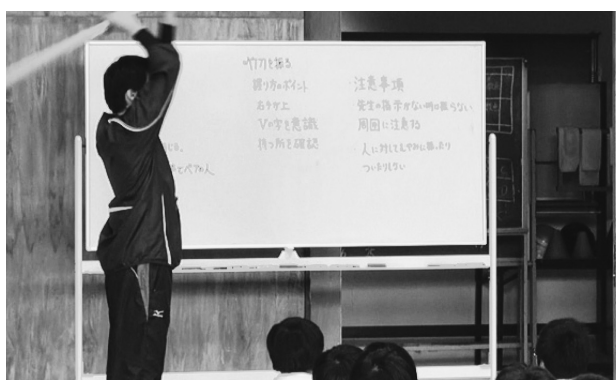 竹刀を振る
握り方のポイント
右手が上
Vの字を意識
持つ所を確認
注意事項
先生の指示がない時は振らない
周囲に注意する
人に対してむやみに振ったり
ついたりしない